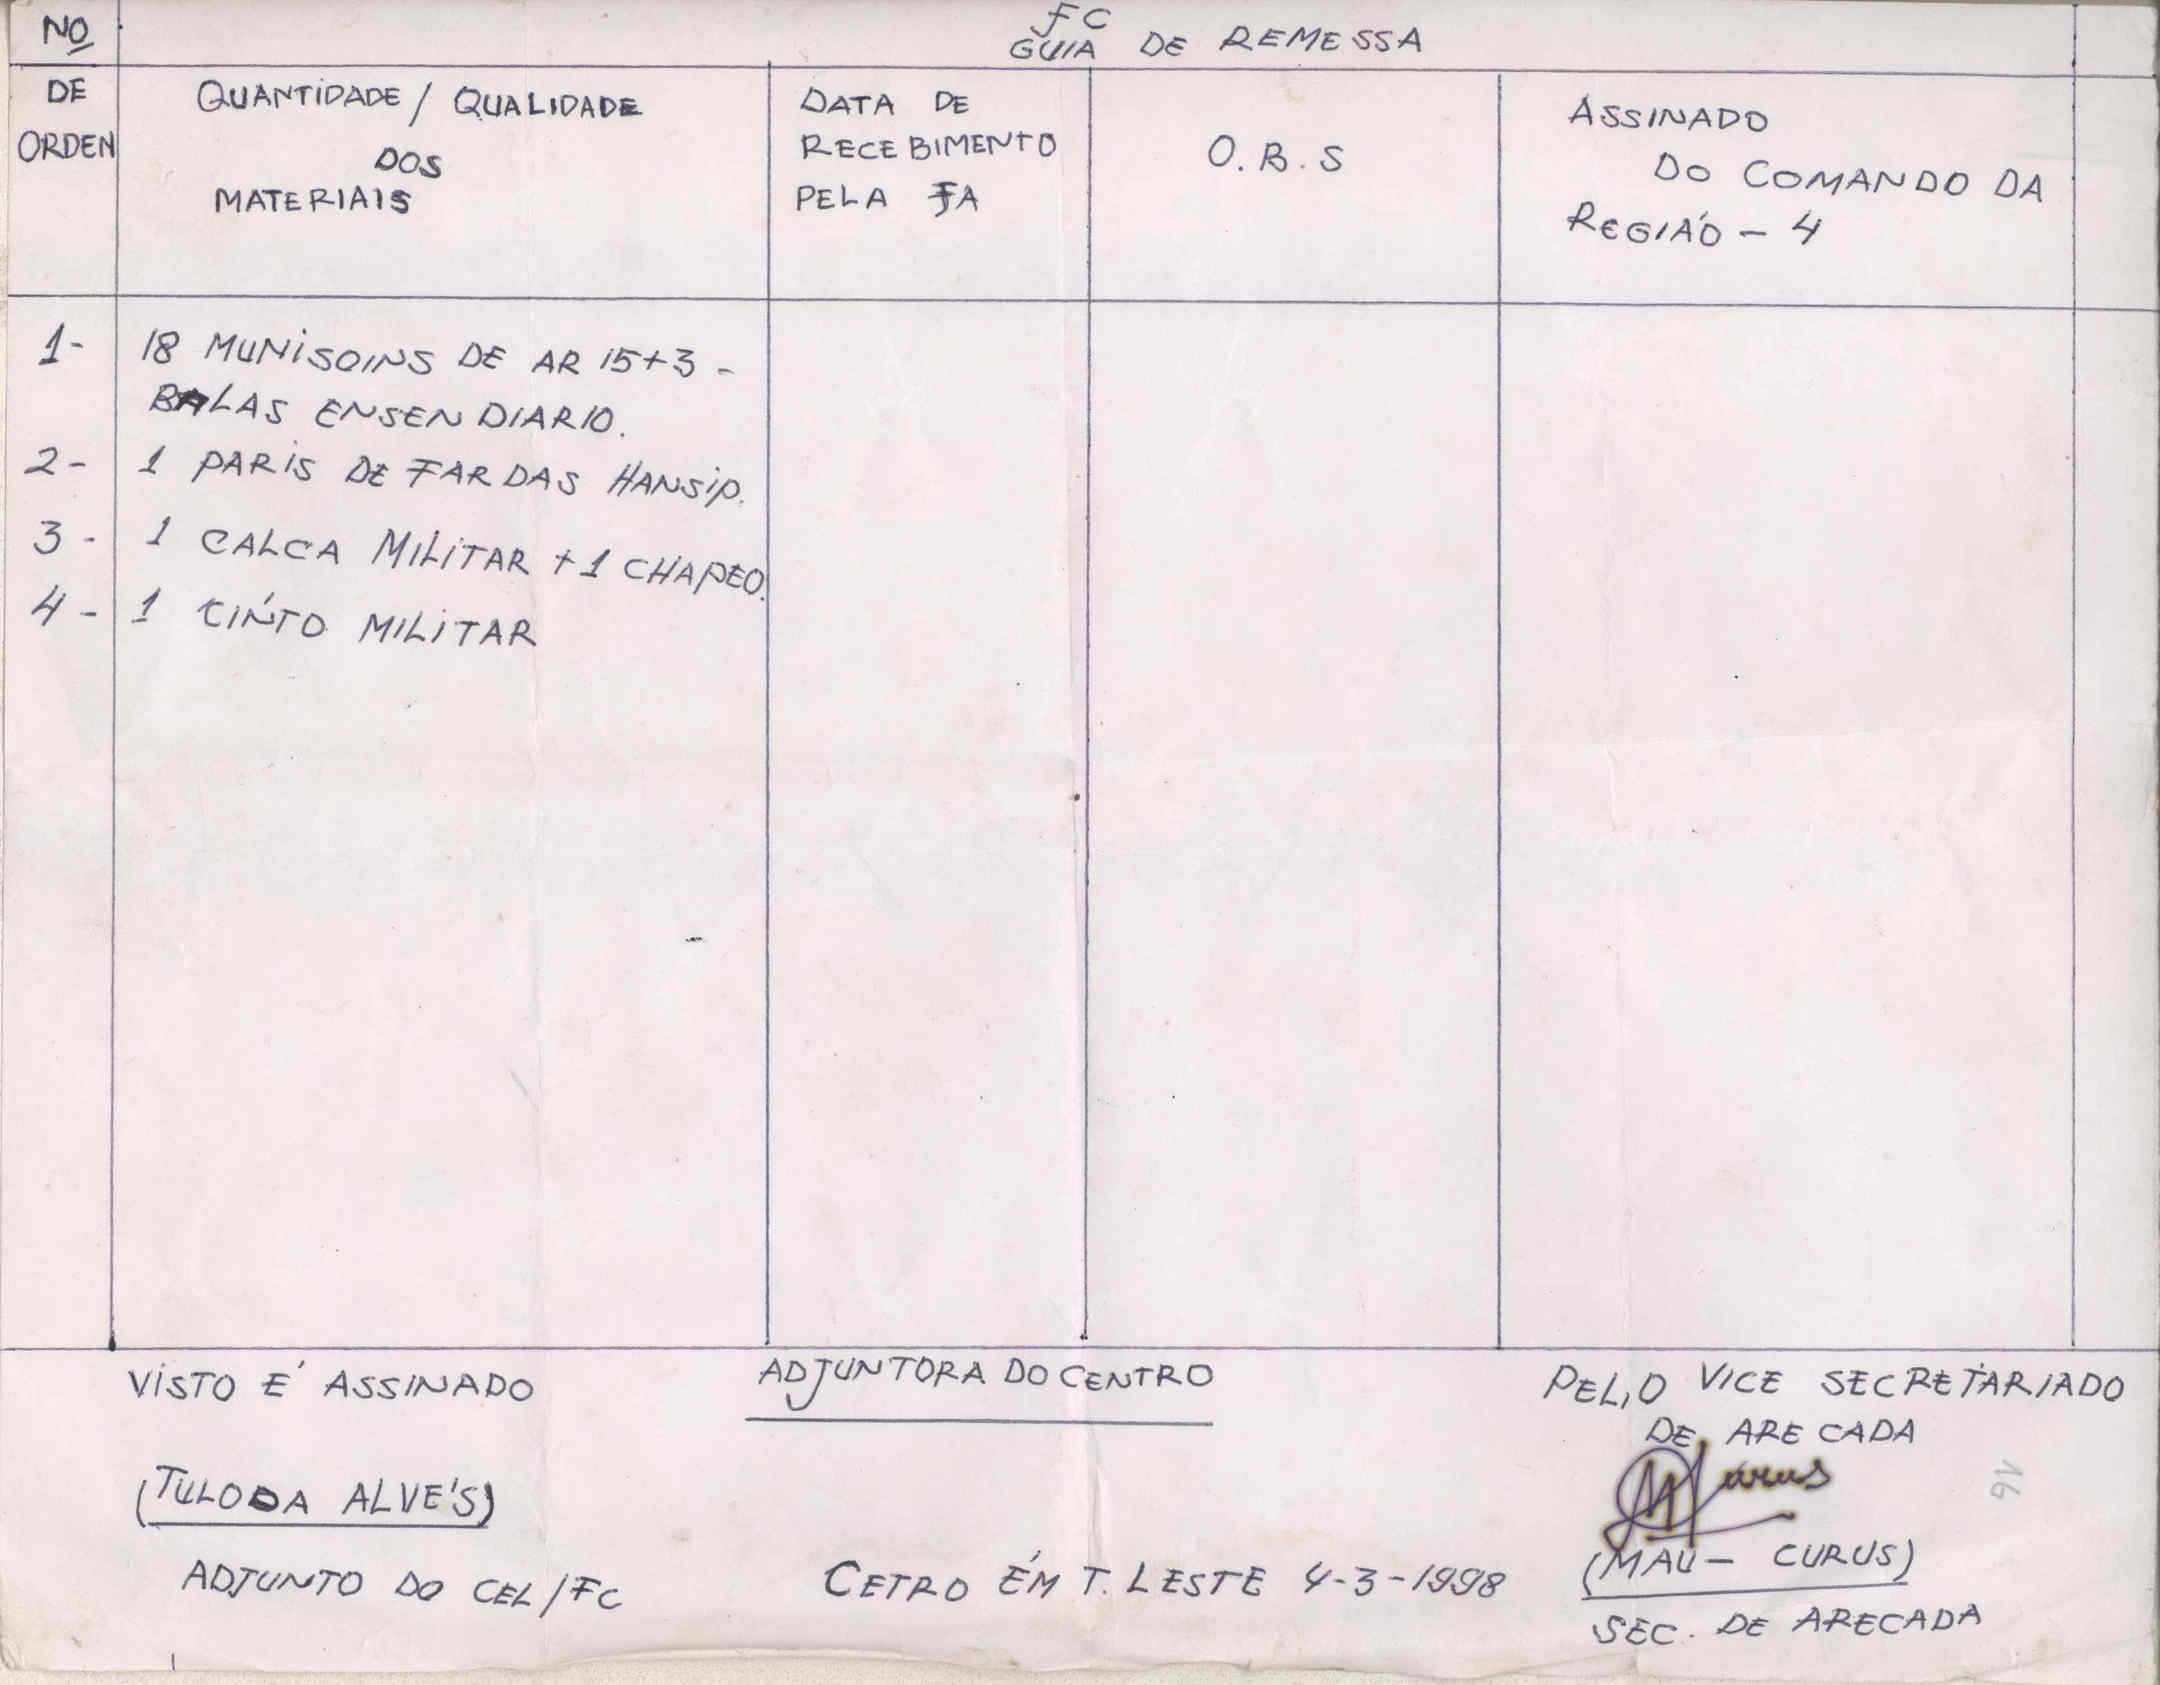 FC
GUIA DE REMESSA
Nº
DE
ORDEN
QUANTIDADE / QUALIDADE
DOS
MATERIAIS
DATA DE
RECEBIMENTO
PELA FA
O.B.S
ASSINADO
DO COMANDO DA
REGIÁO - 4
1- 18 MUNISOINS DE AR 15+3 -
BALAS ENSENDIARIO.
2- 1 PARIS DE FARDAS HANSIP.
3- 1 CALCA MILITAR + 1 CHAPEO.
4- 1 CINTO MILITAR
VISTO É ASSINADO
(TULODA ALVE'S)
ADJUNTO DO CEL/FC
ADJUNTORA DO CENTRO
CETRO ÉM T. LESTE 4-3-1998
PELO VICE SECRETARIADO
DE ARECADA
(MAU - CURUS)
SEC. DE ARECADA
16